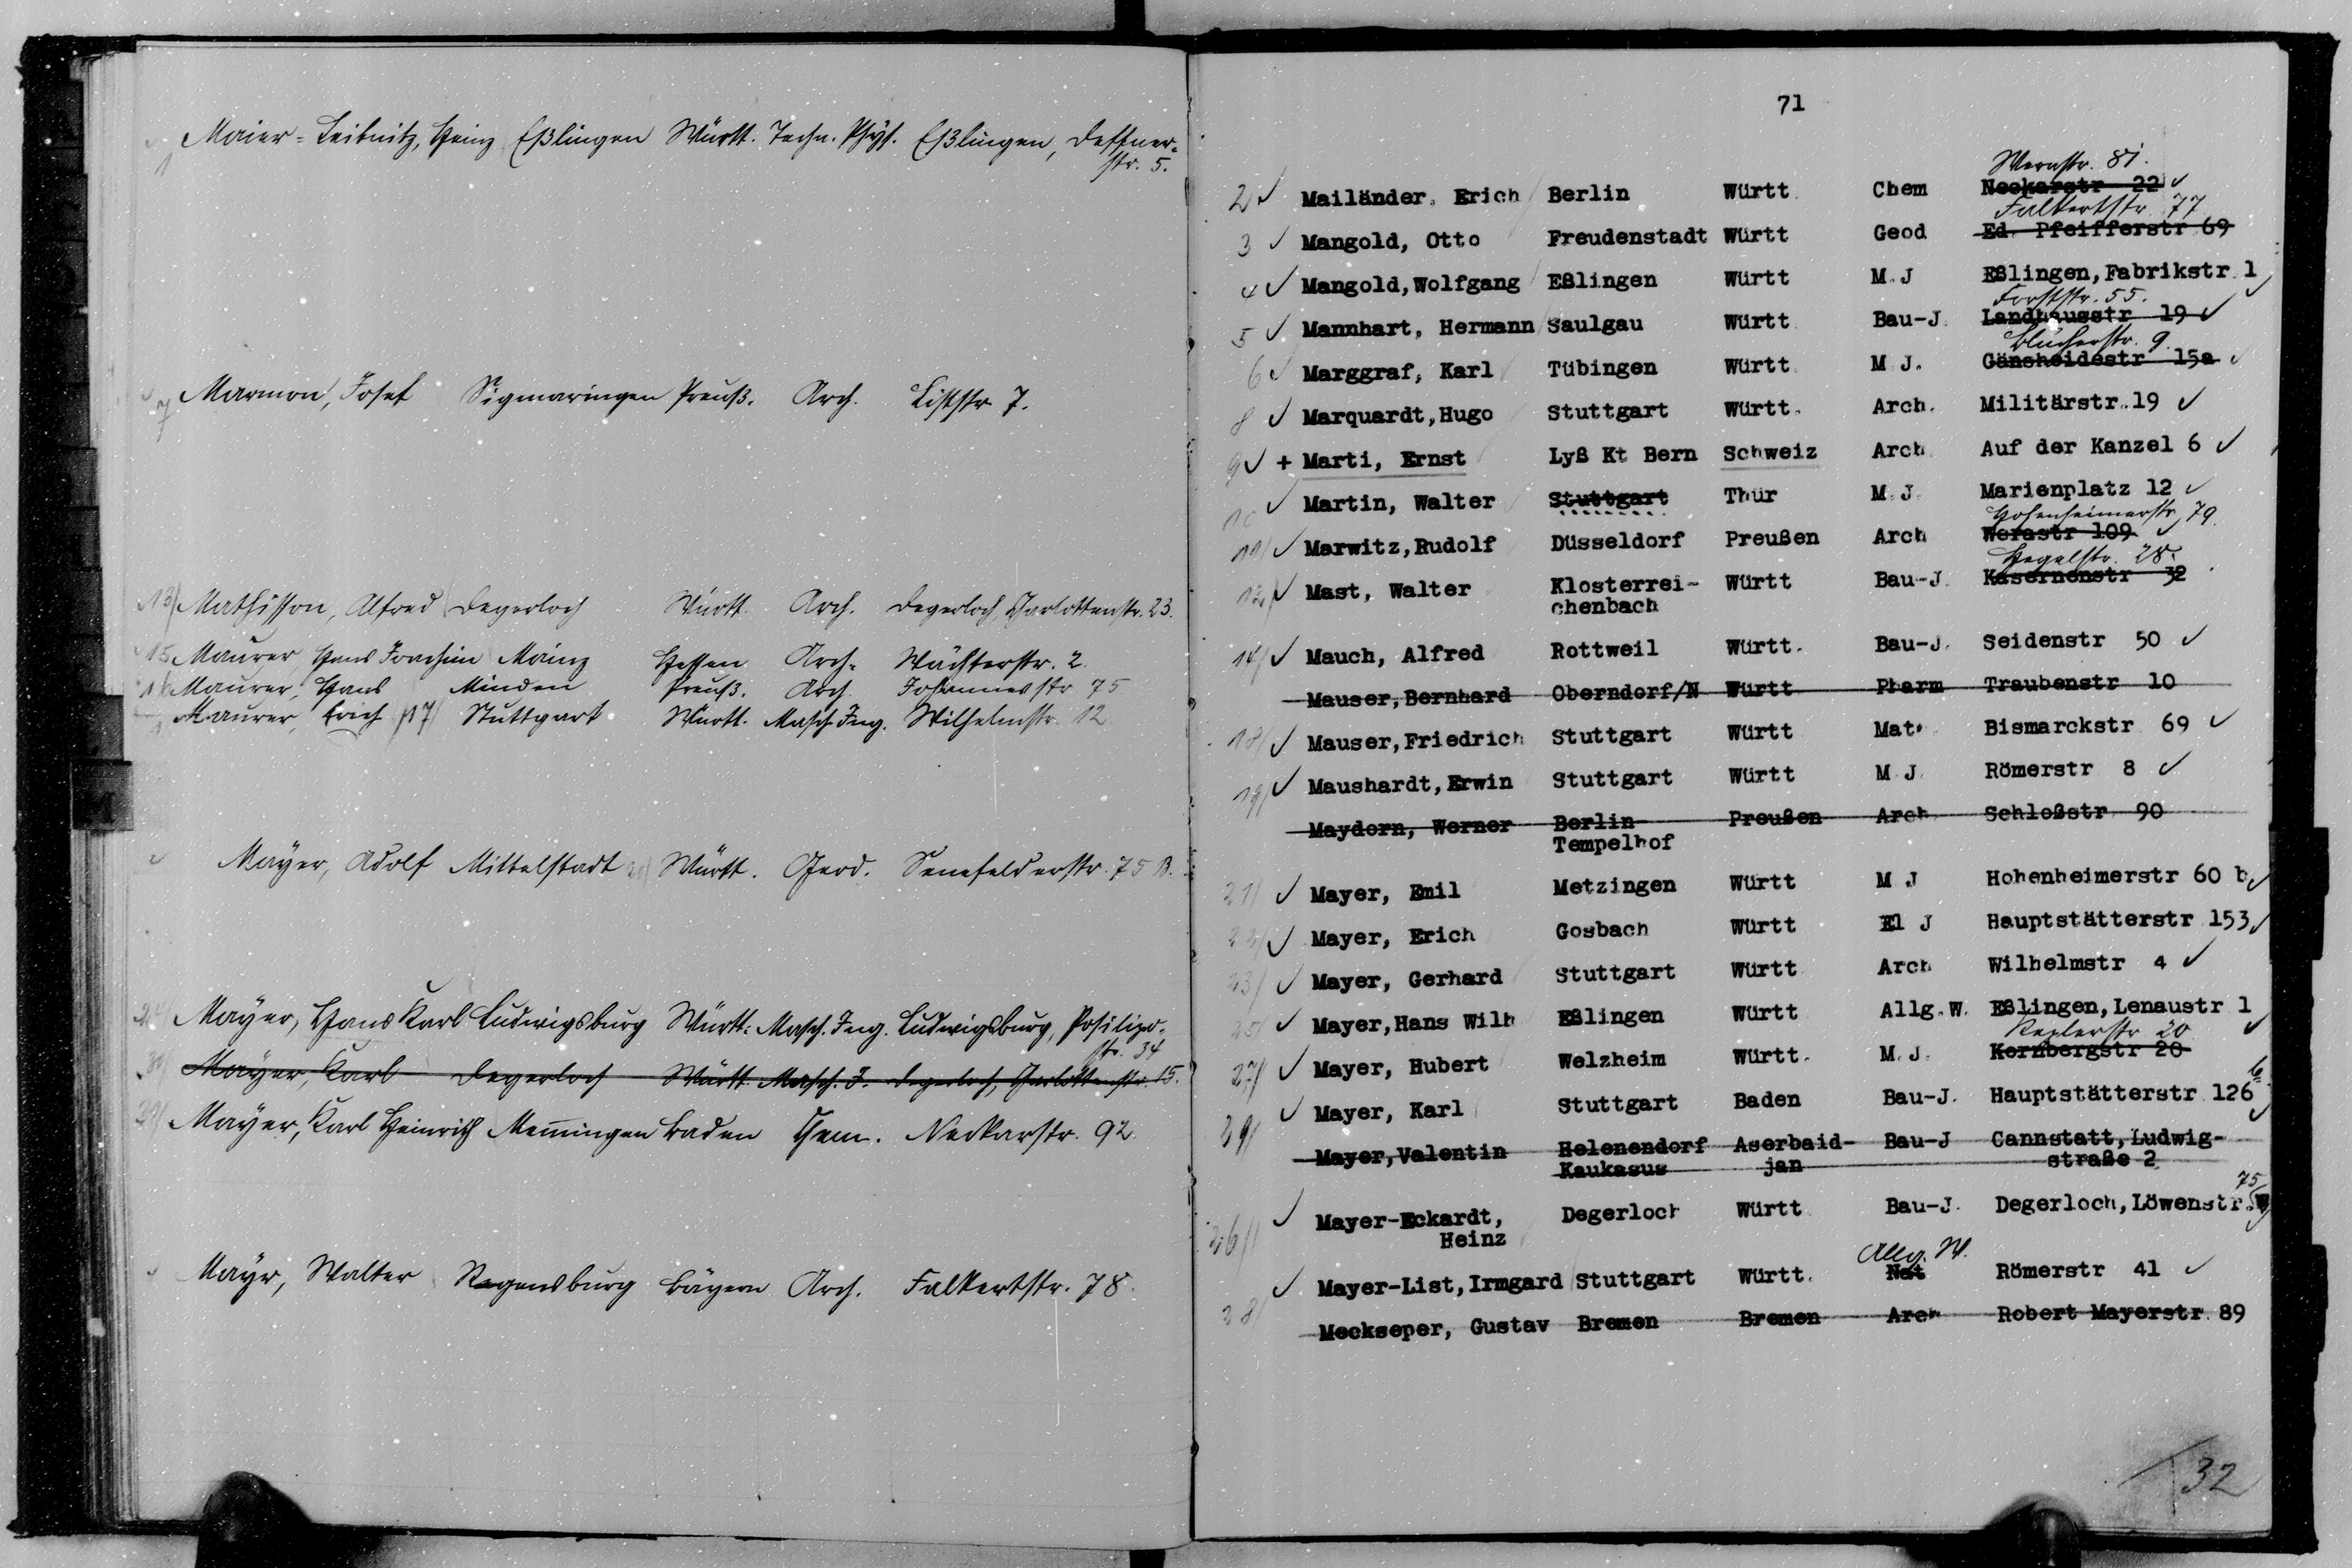 1 Maier-Leibnitz, Heinz Eßlingen Württ. Techn. Phys. Eßlingen, Deffner-
str. 5.
7 Marmon, Josef Sigmaringen Preuß. Arch. Liststr. 7.
13/ Mathisson, Alfred Degerloch Württ. Arch. Degerloch, Charlottenstr. 23.
15 Maurer, Hans Joachim Mainz Hessen Arch. Wächterstr. 2.
16 Maurer, Hans Minden Preuß. Arch. Johannesstr 75
Maurer, Erich 17/ Stuttgart Württ. Masch. Ing. Wilhelmstr. 12
Mayer, Adolf Mittelstadt Württ. Geod. Senefelderstr. 75 B.
24/ Mayer, Hans Karl Ludwigsburg Württ. Masch. Ing. Ludwigsburg, Posilipo-
str. 34
Mayer, Karl Degerloch Württ. Masch. J. Degerloch, Charlottenstr. 15.
Mayer, Karl Heinrich Memmingen Baden Chem. Neckarstr. 92.
Mayr, Walter Regensburg Bayern Arch. Falkertstr. 78.
71
Werastr. 81.
2 ✓ Mailänder, Erich Berlin Württ. Chem Neckarstr 22 ✓
Falkertstr 77
3 ✓ Mangold, Otto Freudenstadt Württ Geod Ed. Pfeifferstr 69
4 ✓ Mangold, Wolfgang Eßlingen Württ M.J Eßlingen, Fabrikstr 1
Forststr. 55.
5 ✓ Mannhart, Hermann Saulgau Württ Bau-J. Landhausstr 19 ✓
Blücherstr. 9.
6 ✓ Marggraf, Karl Tübingen Württ. M J. Gänsheidestr 15a ✓
8 ✓ Marquardt, Hugo Stuttgart Württ. Arch. Militärstr. 19 ✓
9 ✓ + Marti, Ernst Lyß Kt Bern Schweiz Arch. Auf der Kanzel 6 ✓
10 ✓ Martin, Walter Stuttgart Thür M.J. Marienplatz 12 ✓
Hohenheimerstr. 79.
11/ ✓ Marwitz, Rudolf Düsseldorf Preußen Arch Werastr 109 ✓
Hegelstr. 28.
12/ ✓ Mast, Walter Klosterrei- Württ Bau-J. Kasernenstr 32
chenbach
14/ ✓ Mauch, Alfred Rottweil Württ. Bau-J. Seidenstr 50 ✓
Mauser, Bernhard Oberndorf/N Württ Pharm Traubenstr 10
18/ ✓ Mauser, Friedrich Stuttgart Württ Mat. Bismarckstr 69 ✓
19/ ✓ Maushardt, Erwin Stuttgart Württ M J. Römerstr 8 ✓
Maydorn, Werner Berlin Preußen Arch Schloßstr 90
Tempelhof
21/ ✓ Mayer, Emil Metzingen Württ M J Hohenheimerstr 60 b ✓
22/ ✓ Mayer, Erich Gosbach Württ El J Hauptstätterstr 153 ✓
23/ ✓ Mayer, Gerhard Stuttgart Württ Arch Wilhelmstr 4 ✓
25/ ✓ Mayer, Hans Wilh Eßlingen Württ Allg. W. Eßlingen, Lenaustr 1
Keplerstr 20 ✓
27/ ✓ Mayer, Hubert Welzheim Württ. M.J. Kornbergstr 20
29/ ✓ Mayer, Karl Stuttgart Baden Bau-J. Hauptstätterstr 126 b
Mayer, Valentin Helenendorf Aserbaid- Bau-J Cannstatt, Ludwig-
Kaukasus jan straße 2
75
26/ ✓ Mayer-Eckardt, Degerloch Württ Bau-J. Degerloch, Löwenstr.
Heinz
Allg. W.
28/ ✓ Mayer-List, Irmgard Stuttgart Württ. Nat Römerstr 41 ✓
Meckseper, Gustav Bremen Bremen Arch Robert Mayerstr. 89
32